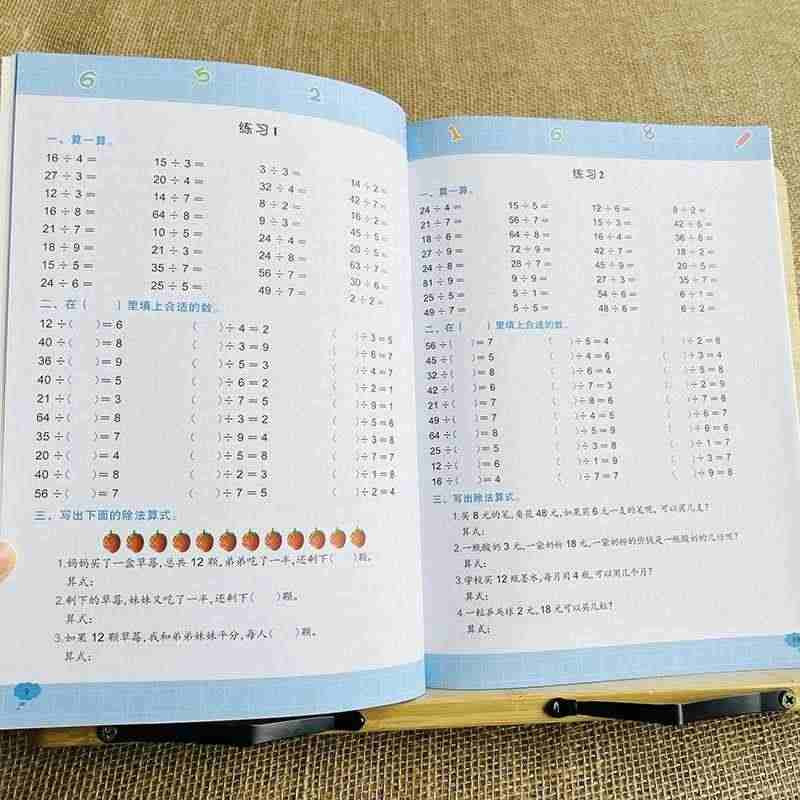 6 5 2
练习1
一、算一算。
16÷4= 15÷3= 3÷3= 14÷2=
27÷3= 20÷4= 32÷4= 42÷7=
12÷3= 14÷7= 8÷2= 16÷2=
16÷8= 64÷8= 9÷3= 45÷5=
21÷7= 10÷5= 24÷4= 20÷5=
18÷9= 21÷3= 24÷8= 63÷7=
15÷5= 35÷7= 56÷7= 30÷6=
24÷6= 25÷5= 49÷7= 2÷2=
二、在( )里填上合适的数。
12÷( )=6 ( )÷4=2 ( )÷3=5
40÷( )=8 ( )÷3=9 ( )÷6=7
36÷( )=9 ( )÷5=3 ( )÷4=7
40÷( )=5 ( )÷6=2 ( )÷2=1
21÷( )=3 ( )÷7=5 ( )÷9=1
64÷( )=8 ( )÷3=2 ( )÷5=6
35÷( )=7 ( )÷9=4 ( )÷3=8
20÷( )=4 ( )÷5=8 ( )÷7=7
40÷( )=8 ( )÷2=3 ( )÷1=8
56÷( )=7 ( )÷7=5 ( )÷2=4
三、写出下面的除法算式。
1.妈妈买了一盒草莓,总共12颗,弟弟吃了一半,还剩下( )颗。
算式:
2.剩下的草莓,妹妹又吃了一半,还剩下( )颗。
算式:
3.如果12颗草莓,我和弟弟妹妹平分,每人( )颗。
算式:
1 6 8
练习2
一、算一算。
24÷4= 15÷5= 12÷6= 8÷2=
21÷7= 56÷7= 15÷3= 42÷6=
18÷6= 64÷8= 16÷4= 36÷6=
27÷9= 72÷9= 42÷7= 18÷2=
24÷8= 28÷7= 45÷9= 20÷5=
81÷9= 9÷9= 27÷3= 35÷7=
25÷5= 5÷1= 54÷6= 6÷1=
49÷7= 5÷5= 48÷6= 6÷2=
二、在( )里填上合适的数。
56÷( )=7 ( )÷5=4 ( )÷2=8
45÷( )=5 ( )÷4=6 ( )÷3=4
32÷( )=8 ( )÷6=4 ( )÷4=5
42÷( )=6 ( )÷7=3 ( )÷2=9
21÷( )=7 ( )÷8=6 ( )÷7=8
49÷( )=7 ( )÷4=5 ( )÷6=7
64÷( )=8 ( )÷5=9 ( )÷6=6
25÷( )=5 ( )÷3=8 ( )÷1=7
12÷( )=6 ( )÷1=9 ( )÷3=7
16÷( )=4 ( )÷7=7 ( )÷9=8
三、写出除法算式。
1.买8元的笔,要花48元,如果买6元一支的笔呢,可以买几支?
算式:
2.一瓶酸奶3元,一袋奶粉18元,一袋奶粉的价钱是一瓶酸奶的几倍呢?
算式:
3.学校买12瓶墨水,每月用4瓶,可以用几个月?
算式:
4.一粒乒乓球2元,18元可以买几粒?
算式: